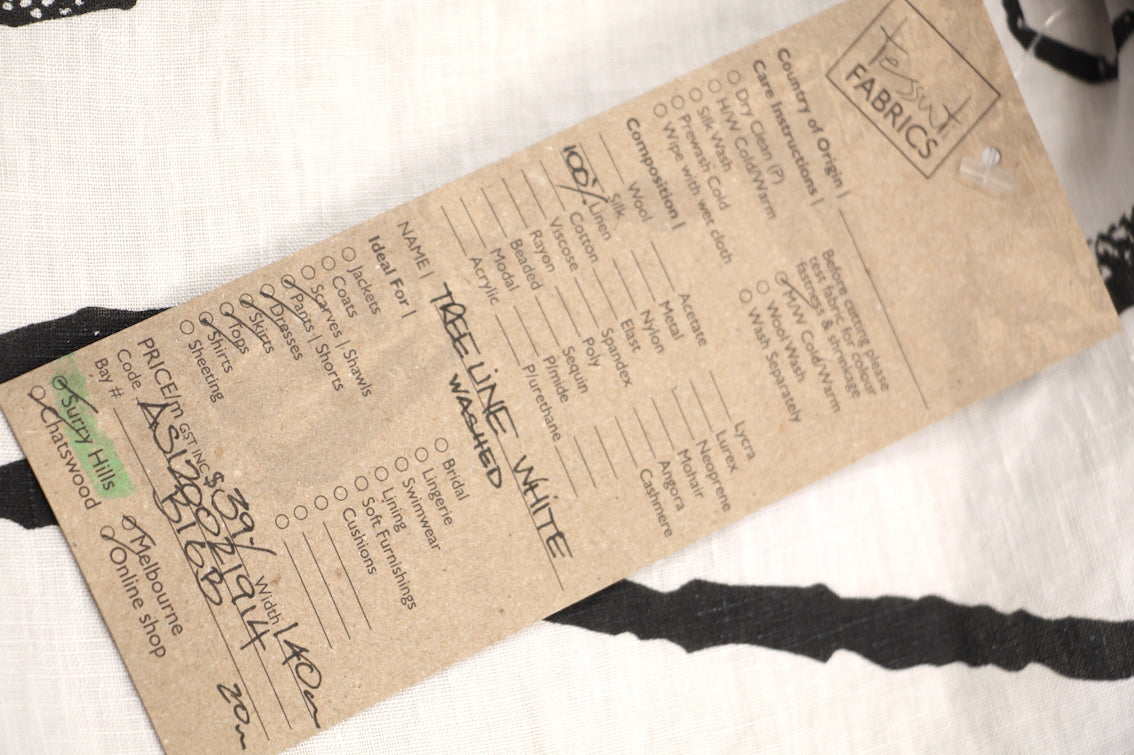 Tessuti
FABRICS
Country of Origin |
Care Instructions |
Before cutting please
test fabric for colour
fastness & shrinkage
Dry Clean (P)
H/W Cold/Warm
Silk Wash
Prewash Cold
Wipe with wet cloth
M/W Cold/Warm
Wool Wash
Wash Separately
Composition |
Wool
Silk
100% Linen
Cotton
Viscose
Rayon
Beaded
Modal
Acrylic
Acetate
Metal
Nylon
Elast
Spandex
Poly
Sequin
P/mide
P/urethane
Lycra
Lurex
Neoprene
Mohair
Angora
Cashmere
NAME | TREELINE WHITE
WASHED
Ideal For |
Jackets
Coats
Scarves | Shawls
Pants | Shorts
Dresses
Skirts
Tops
Shirts
Sheeting
Bridal
Lingerie
Swimwear
Lining
Soft Furnishings
Cushions
PRICE/m GST INC $39/ Width 140cm
Code AS120021914
Bay # B16B 20m
Surry Hills
Chatswood
Melbourne
Online shop